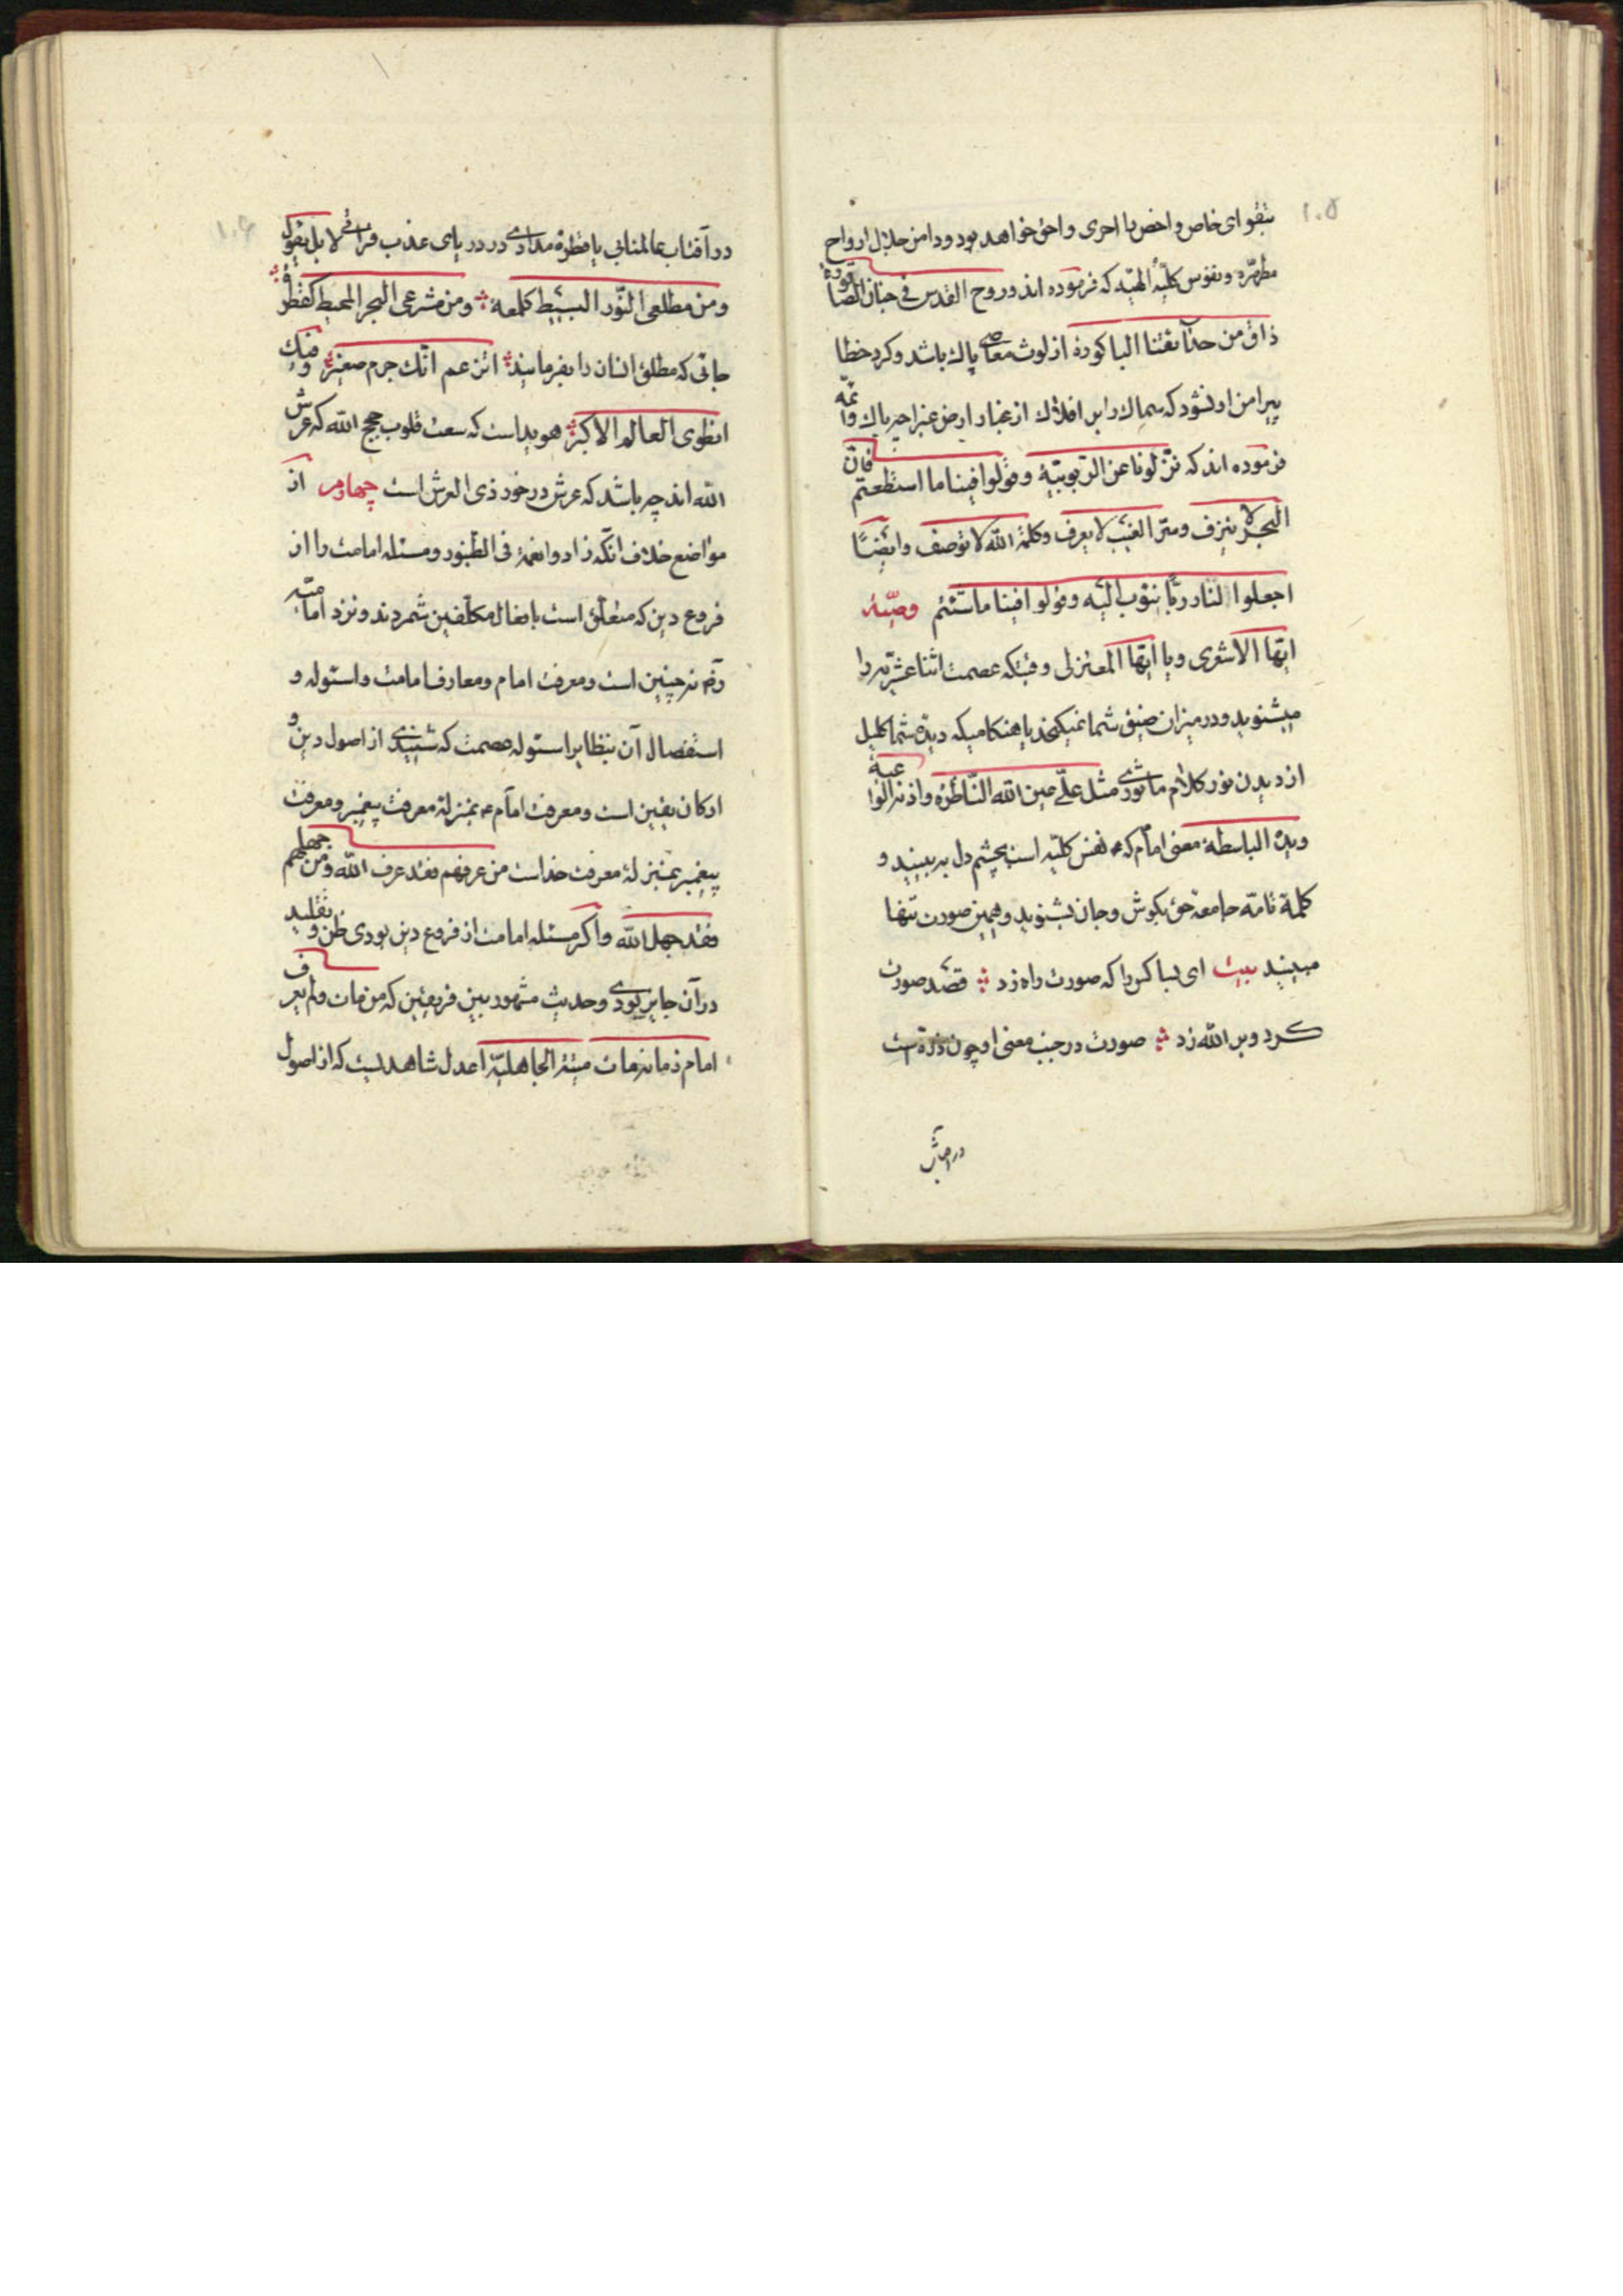 ۱۰۵
بتقوای خاص و اخص با احری و احق خواهد بود و دامن جلال ارواح
مطهّره و نفوس کلیّهٔ الهیّه که فرموده اند و روح القدس فی جنان الصاقورة
ذاق من حدآئقنا الباکورة از لوث معاصی پاک باشد و کرد خطا
پیرامن او نشود که سماک رابر افلاک از غبار ارض غبرا چه باک و ائمّه
فرموده اند که نزّلونا عن الرّبوبیّة و قولوا فینا ما استطعتم فانّ
البحر لا ینزف و سرّ الغیب لا یعرف و کلمة الله لا توصف و ایضًا
اجعلوا لنا ربًّا نتوب الیه و قولوا فینا ما شئتم وصیّة
ایّها الاشعری و یا ایّها المعتزلی وقتیکه عصمت اثنا عشریّه را
میشنوید و در میزان ضیق شما نمیکنجد یا هنکامیکه دیدهٔ شما کلیل
از دیدن نور کلام ماثوری مثل علیّ عین الله النّاظرة و اذنه الواعیة
و یده الباسطة معنی امام که نفس کلیّه است بچشم دل به بینید و
کلمهٔ تامّه جامعهٔ حق بکوش و جان بشنوید و همین صورت تنها
مبینید بیت ای بسا کس را که صورت راه زد قصد صورت
کرد و بر الله زد صورت در جنب معنی او چون ذرّه است
در جنب
۱۰۶
در آفتاب عالمتابی یا قطرهٔ مدادی در دریای عذب فراتی لا بل یقول
و من مطلعی النّور البسیط کلمعة و من مشرعی البحر المحیط کقطرة
جائی که مطلق انسان را بفرمایند اتزعم انّک جرم صغیر و فیک
انطوی العالم الاکبر هویداست که سعت قلوب حجج الله که عرش
الله اند چه باشد که عرش در خود ذی العرش است چهارم از
مواضع خلاف آنکه زادوا نغمة فی الطنبور و مسئله امامت را از
فروع دین که متعلّق است بافعال مکلّفین شمردند و نزد امامیّه
رقم نه چنین است و معرفت امام و معارف امامت و استوله و
استفصال آن بنظایر استوله عصمت که شنیدی از اصول دین و
ارکان یقین است و معرفت امام بمنزلهٔ معرفت پیغمبر و معرفت
پیغمبر بمنزلهٔ معرفت خداست من عرفهم فقد عرف الله و من جهلهم
فقد جهل الله و اکر مسئله امامت از فروع دین بودی ظن و تقلید
در آن جایز بودی و حدیث مشهور بین فریقین که من مات و لم یعرف
امام زمانه مات میتة الجاهلیّة اعدل شاهدیست که از اصول